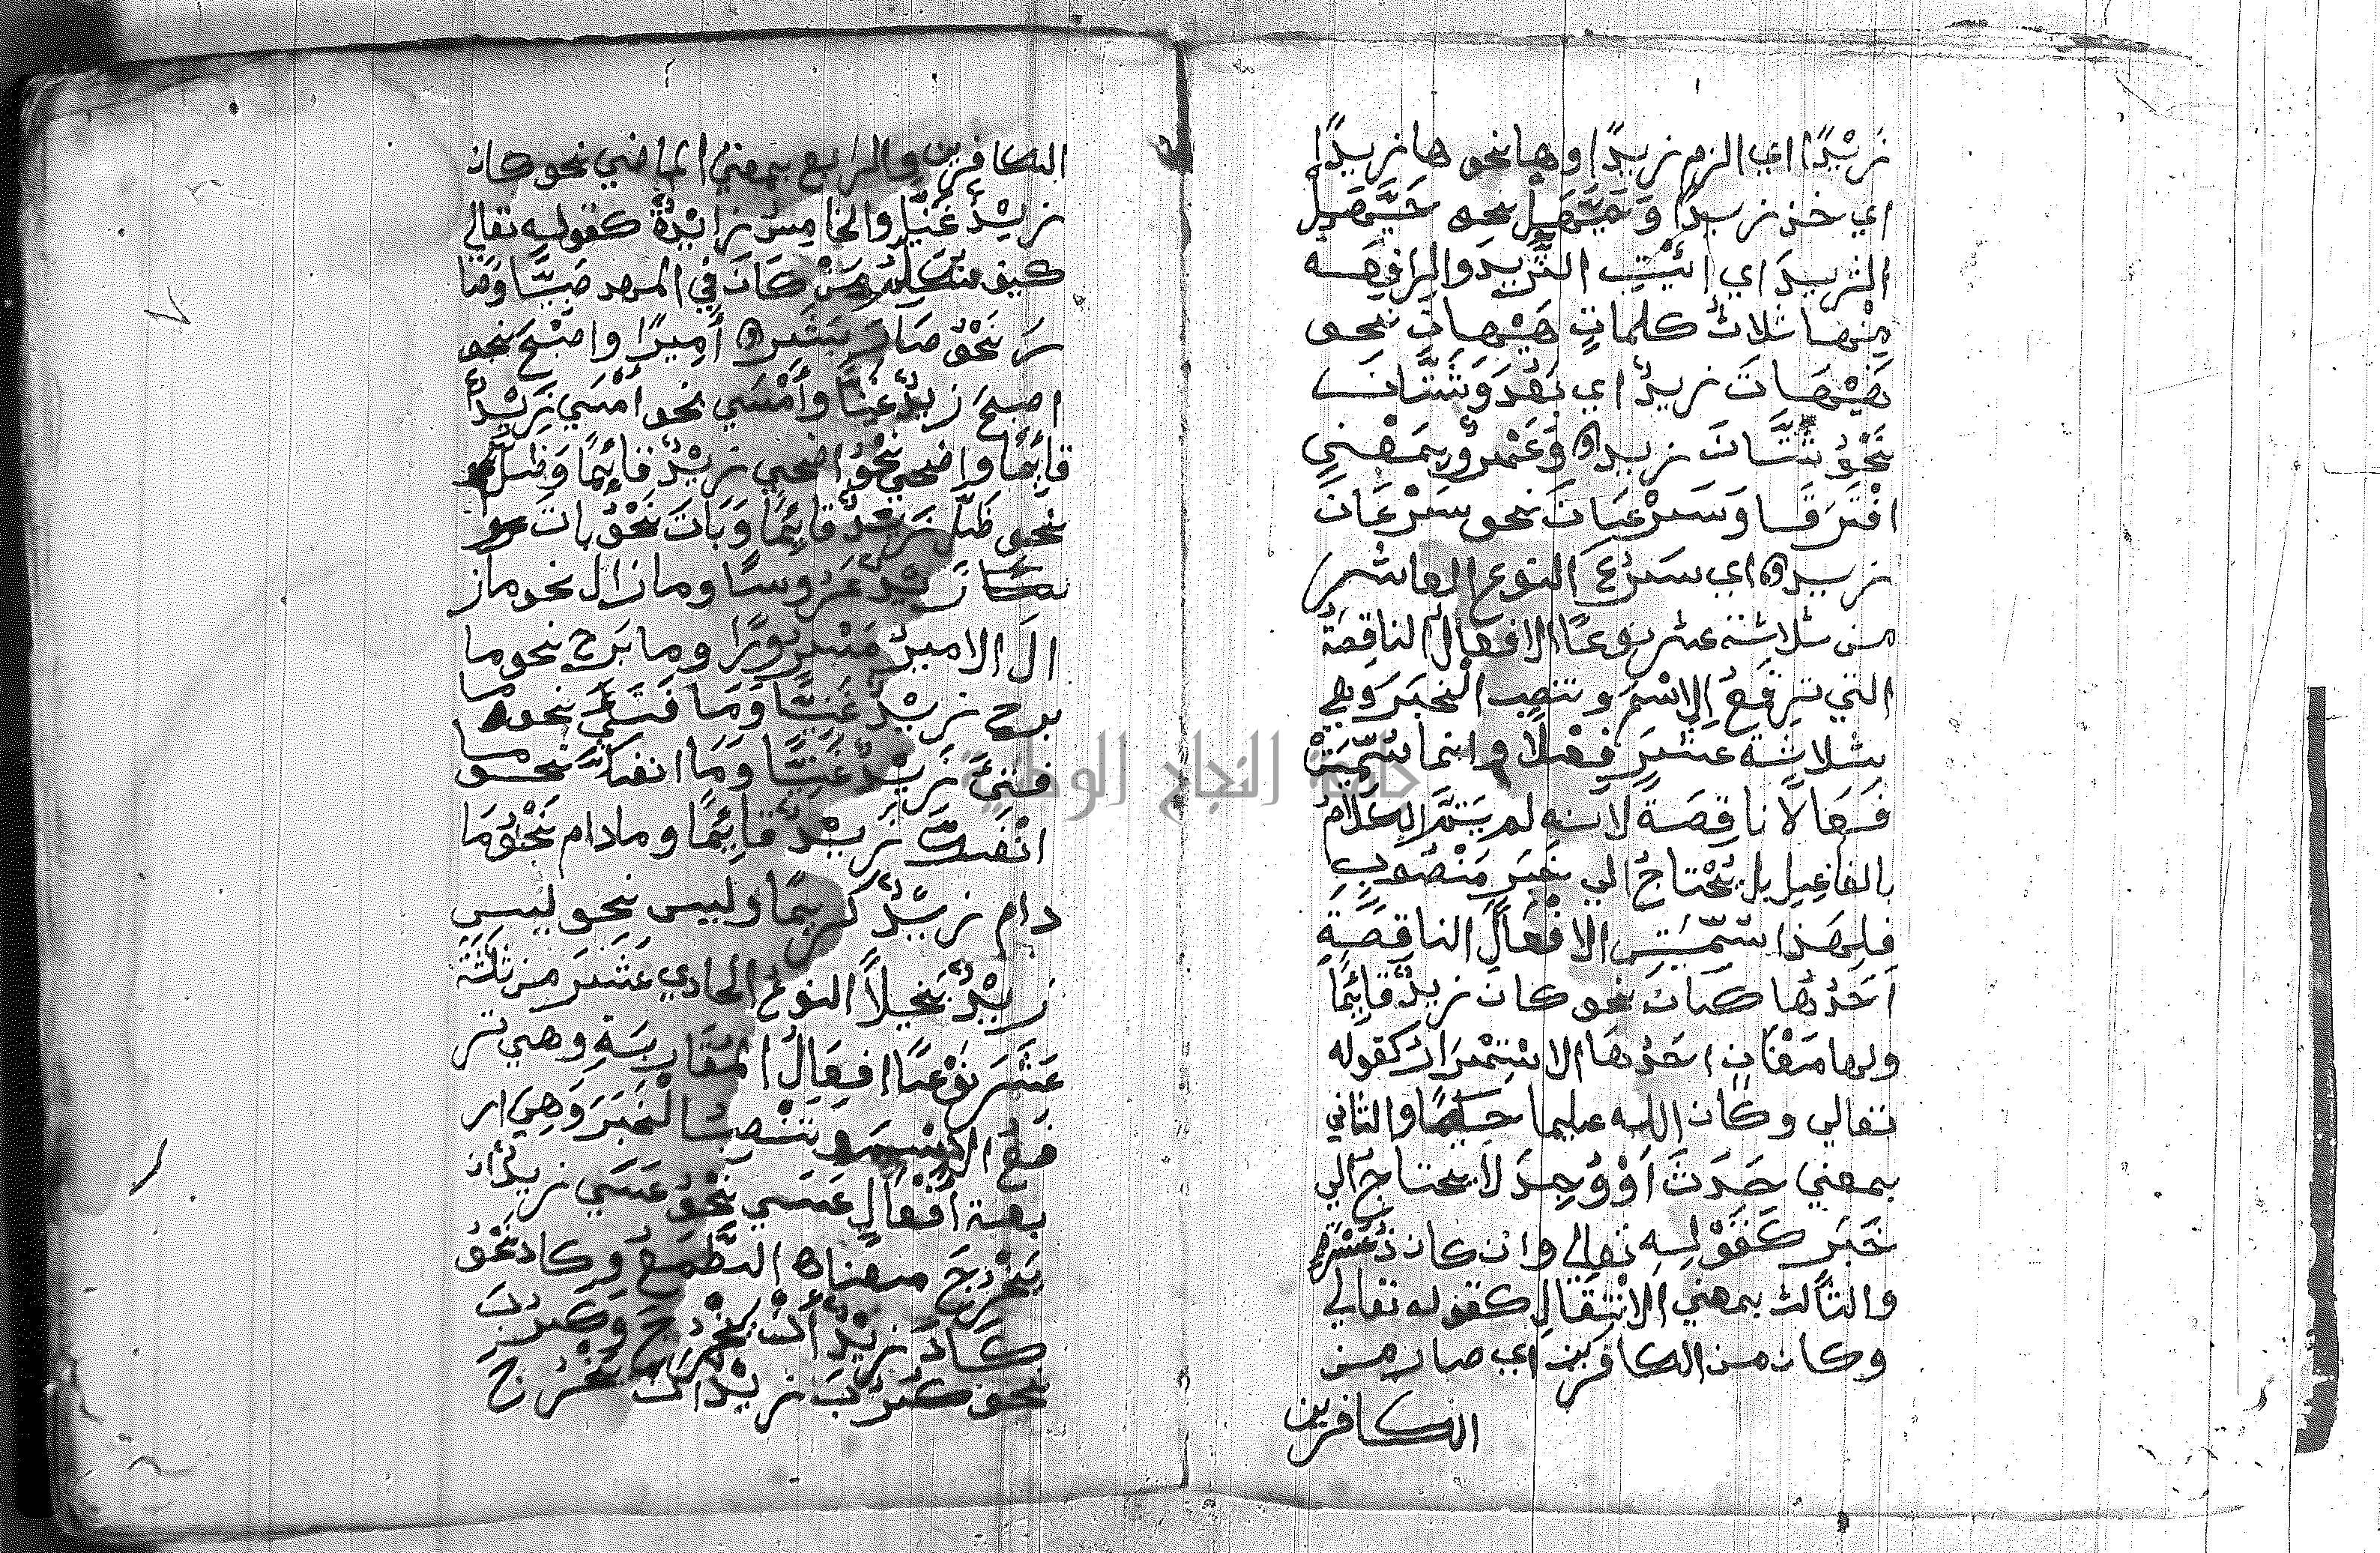 زَيْدًا اي الزم زيدًا وها نحو ها زيدًا
اي خذ زيدا وَحَيَّهَلْ نحو حَيَّهَلْ
الثريدَ اي ائيتِ الثَّرِيدَ والرافعه
مِنْهَا ثلاثُ كلماتٍ هَيْهاتَ نحو
هَيْهَاتَ زيدٌ اي بَعُدَ وَشَتَّانَ
نَحْوُ شَتَّانَ زيدٌ وَعَمْروٌ بِمَعْنِي
افْتَرَقَا وَسَرْعَانَ نحو سَرْعَانَ
زيدٌ اي سَرُعَ النوع العاشر
من ثلاثة عشر نوعًا الافعالُ الناقِصَةُ
التي ترْفَعُ الاِسْمَ وتنصِب الْخبَرَ وهي
ثلاثة عَشَرَ فِعْلاً وانما سُمِّيَتْ
فَعَالاً ناقِصَةً لانه لم يَتِمَّ الكَلَامُ
بالفاعِلِ بل يُحْتاجُ الي خَبَرٍ مَنْصُوبٍ
فلهَذا سُمِّيَتِ الافْعَالَ الناقِصَةِ
اَحَدُهَا كَانَ نحو كان زيدٌ قائِمًا
ولها مَعْنَانِ احَدُهَا الاسْتِمْرَارُ كقوله
تعالي وكان الله عليما حكيمًا والثاني
بمعني حَدَثَ اَوْ وُجِدَ لا يحتاج الي
خَبَرٍ كَقَوْلِهِ تعالي وان كان ذُعسْرةٍ
والثالث بمعني الانْتِقَالِ كقوله تعالي
وكان من الكافرين اي صار من
الكافرين
الكافرين والرابع بمعني الماضي نحو كان
زيْدٌ غَنِيًّا والخامِسُ زايْدَةٌ كقوله تعالي
كيف نكلم مَنْ كَانَ في المهد صَبِيًّا وَصَا
رَ نَحْوُ صَارَ بَشَرٌ أَمِيرًا واصْبَحَ نحو
اصبحَ زيدٌ غنِيًّا وأَمْسَي نحو أمْسَي زَيْدٌ
قائِمًا واضحي نَحْوُ اضحي زيْدٌ قائِمًا وَظلَّ
نحو ظَلَّ زَيْدٌ قائِمًا وَبَاتَ نَحْوُ بات
زَيْدٌ عَرُوسًا وما زال نحو ماز
الَ الاميرُ مَسْرُورًا وما بَرِحَ نحو ما
برح زيْدٌ غَنِيًّا وَمَا فَتِئَ نحو ما
فتئَ زَيْدٌ غَنِيًّا وَمَا انفكَّ نحو ما
انْفَكَّ زَيْدٌ قائِمًا ومادام نَحْوُ مَا
دام زيْدٌ كَرِيمًا وليس نحو ليس
زَيْدٌ بَخيلاً النوعُ الحادي عَشَرَ من ثلثة
عَشَرَ نَوْعًا افعَالُ المقَاربَةِ وهي تر
فَعُ الاِسْمَ وَتَنْصِبُ الْخَبَرَ وَهِيَ ار
بعة اَفْعَالٍ عَسَي نَحْوُ عَسَي زيدٌ أن
يَخْرُجَ معناه الطَّمَعُ وكاد نَحْوُ
كَادَ زَيْدٌ أَنْ يَخْرُجَ وَكَرُبَ
نحو كَرُبَ زيْدٌ ان يَخْرُجَ
جامعة النجاح الوطنية